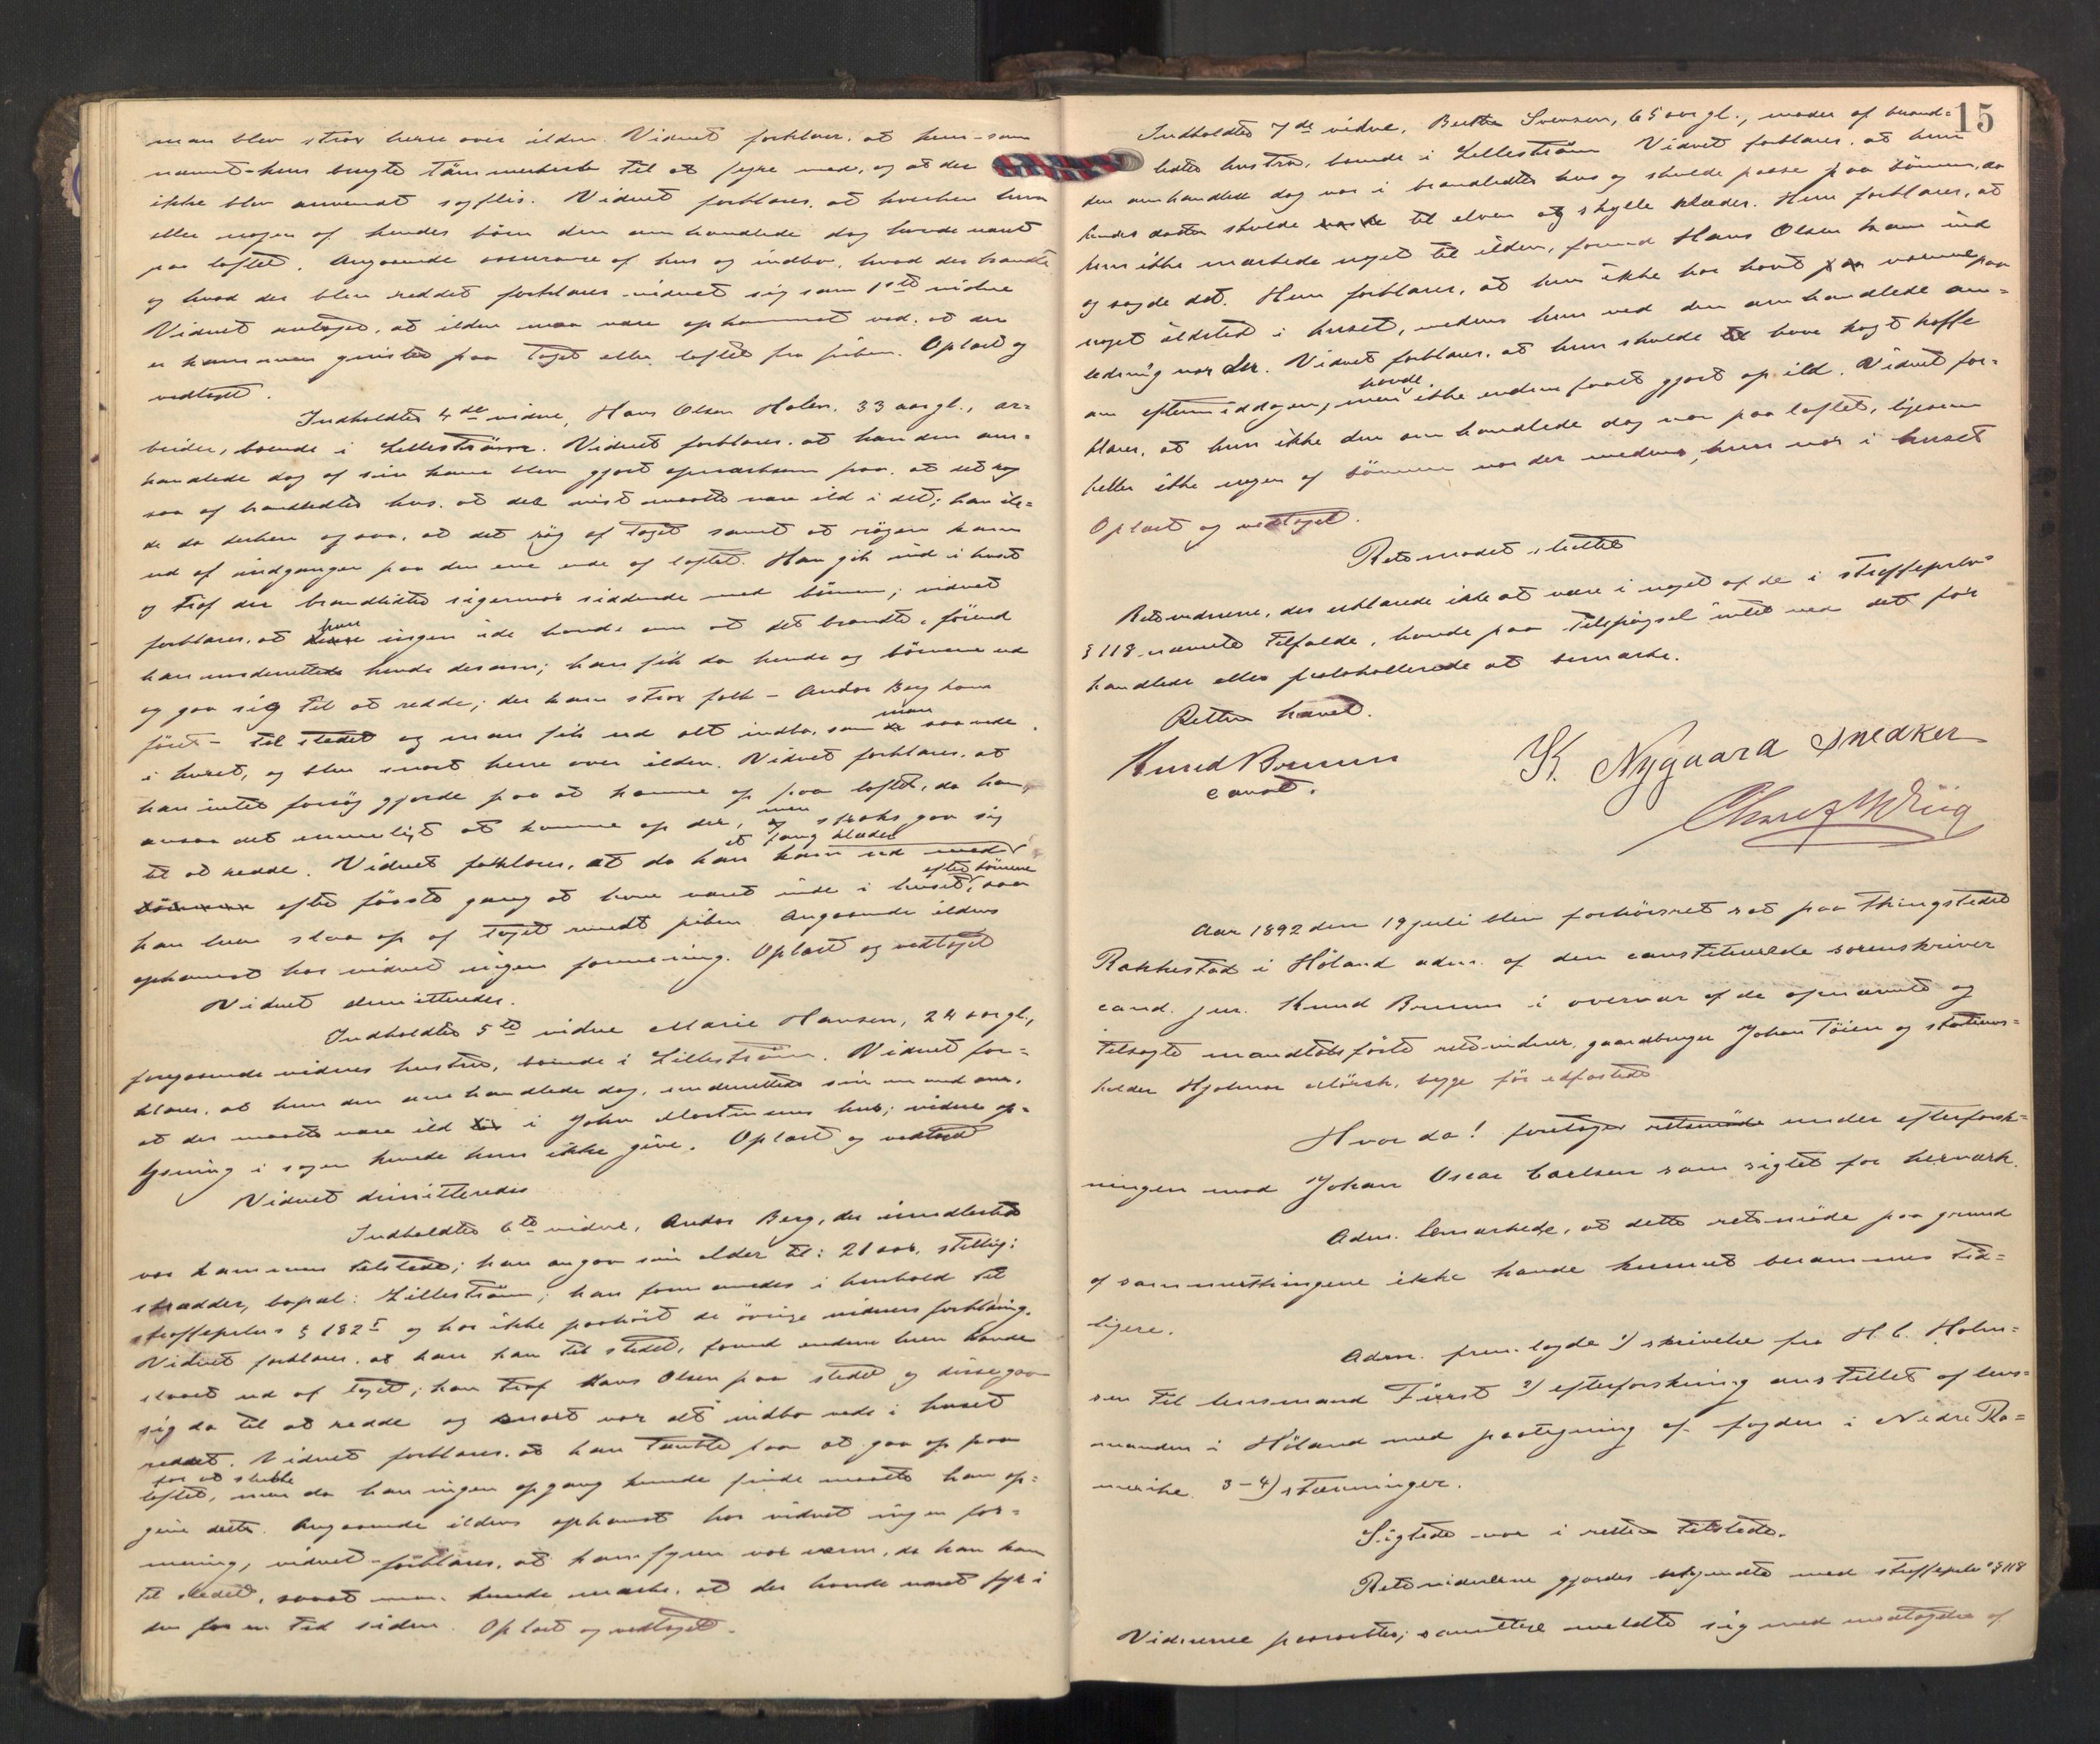 man blev strax herre over ilden. Vidnet forklarer, at hun - som
nævnt - kun brugte tømmerbark til at fyre med, og at der
ikke blev anvendt sagflis. Vidnet forklarer, at hverken hun
eller nogen af hendes børn den omhandlede dag havde været
paa loftet. Angaaende assurance af hus og indbo, hvad der brandte
og hvad der blev reddet forklarer vidnet sig som 1ste vidne
Vidnet antager, at ilden maa være opkommet ved, at der
er kommen gnister paa taget eller loftet fra piben. Oplæst og
vedtaget.
Indkaldtes 4de vidne, Hans Olsen Holen, 33 aar gl., ar=
beider, boende i Lillestrøm. Vidnet forklarer, at han den om=
handlede dag af sin kone blev gjort opmærksom paa, at det røg
saa af brandlidtes hus, at det vist maatte være ild i det; han ile=
de da derhen og saa, at det røg af taget samt at røgen kom
ud af indgangen paa den ene ende af loftet. Han gik ind i huset
og traf der brandlidtes svigermor siddende med børnene; vidnet
forklarer, at hun ingen ide havde om at det brandte, førend
han underrettede hende derom; han fik da hende og børnene ud
og gav sig til at redde; der kom strax folk - Andor Berg kom
først - til stedet og man fik ud alt indbo, som man saa nede
i huset, og blev snart herre over ilden. Vidnet forklarer, at
han intet forsøg gjorde paa at komme op paa loftet, da han
ansaa det umuligt at komme op der, men straks gav sig
til at redde. Vidnet forklarer, at da han kom ud med
et fang klæder
efter første gang at have været inde i huset efter børnene, saa
han luen slaa op af taget rundt piben. Angaaende ildens
opkomst har vidnet ingen formening. Oplæst og vedtaget
Vidnet demitteredes.
Indkaldtes 5te vidne Marie Hansen, 24 aar gl.,
foregaaende vidnes hustru, boende i Lillestrøm. Vidnet for=
klarer, at hun den omhandlede dag, underrettede sin mand om,
at der maatte være ild i Johan Martinsens hus; videre op=
lysning i sagen kunde hun ikke give. Oplæst og vedtaget
Vidnet dimitteredes
Indkaldtes 6te vidne, Andor Berg, der imidlertid
var kommen tilstede; han angav sin alder til: 21 aar, stilling:
skrædder, bopæl: Lillestrøm; han formanedes i henhold til
straffeprlov s § 182 I og har ikke paahørt de øvrige vidners forklaring.
Vidnet forklarer, at han kom til stedet, førend endnu luen havde
slaaet ud af taget; han traf Hans Olsen paa stedet og disse gav
sig da til at redde og snart var alt indbo nede i huset
reddet. Vidnet forklarer, at han tænkte paa at gaa op paa
loftet for at slukke, men da han ingen opgang kunde finde maatte han op=
give dette. Angaaende ildens opkomst har vidnet ingen for=
mening, vidnet forklarer, at komfyren var varm, da han kom
til stedet, saaat man kunde mærke, at der havde været fyr i
den for en tid siden. Oplæst og vedtaget.
15
Indkaldtes 7de vidne, Berthe Svensen, 65 aar gl., moder af brand=
lidtes hustru, boende i Lillestrøm. Vidnet forklarer, at hun
den omhandlede dag var i brandlidtes hus og skulde passe paa børnene, da
hendes datter skulde til elven og skylle klæder. Hun forklarer, at
hun ikke mærkede noget til ilden, førend Hans Olsen kom ind
og sagde det. Hun forklarer, at hun ikke har havt varme paa
noget ildsted i huset, medens hun ved den omhandlede an=
ledning var der. Vidnet forklarer, at hun skulde have kogt kaffe
om eftermiddagen, men havde ikke endnu faaet gjort op ild. Vidnet for=
klarer, at hun ikke den omhandlede dag var paa loftet, ligesom
heller ikke nogen af børnene var der medens hun var i huset
Oplæst og vedtaget.
Retsmødet sluttet
Retsvidnerne, der erklærede ikke at være i noget af de i straffeprlov s
§ 118 nævnte tilfælde, havde paa tilspørgsel intet ved det for
handlede eller protokollerede at bemærke.
Retten hævet.
Knud Bonnen
const.
K. Nygaard Snedker
Aar 1892 den 19 juli blev forhørsret sat paa thingstedet
Rakkestad i Høland adm. af den constituerede sorenskriver
cand. jur. Knud Bonnen i overvær af de opnævnte og
tilsagte mandtalsførte retsvidner, gaardbruger Johan Tøien og stations=
holder Hjalmar Mørch, begge før edfæstede
Hvor da! foretages retsmøde under efterforsk=
ningen mod Johan Oscar Carlsen som sigtet for hærværk.
Adm. bemærkede, at dette retsmøde paa grund
af sommerthingene ikke havde kunnet berammes tid=
ligere.
Adm. fremlagde 1) skrivelse fra H. C. Holm=
sen til lensmand Fürst 2) efterforskning anstillet af lens=
manden i Høland med paategning af fogden i Nedre Ro=
merike 3-4) stævninger.
Sigtede var i retten tilstede.
Retsvidnerne gjordes bekjendte med straffeprlov s § 118
Vidnerne paaraabtes; samtlige meldte sig med undtagelse af